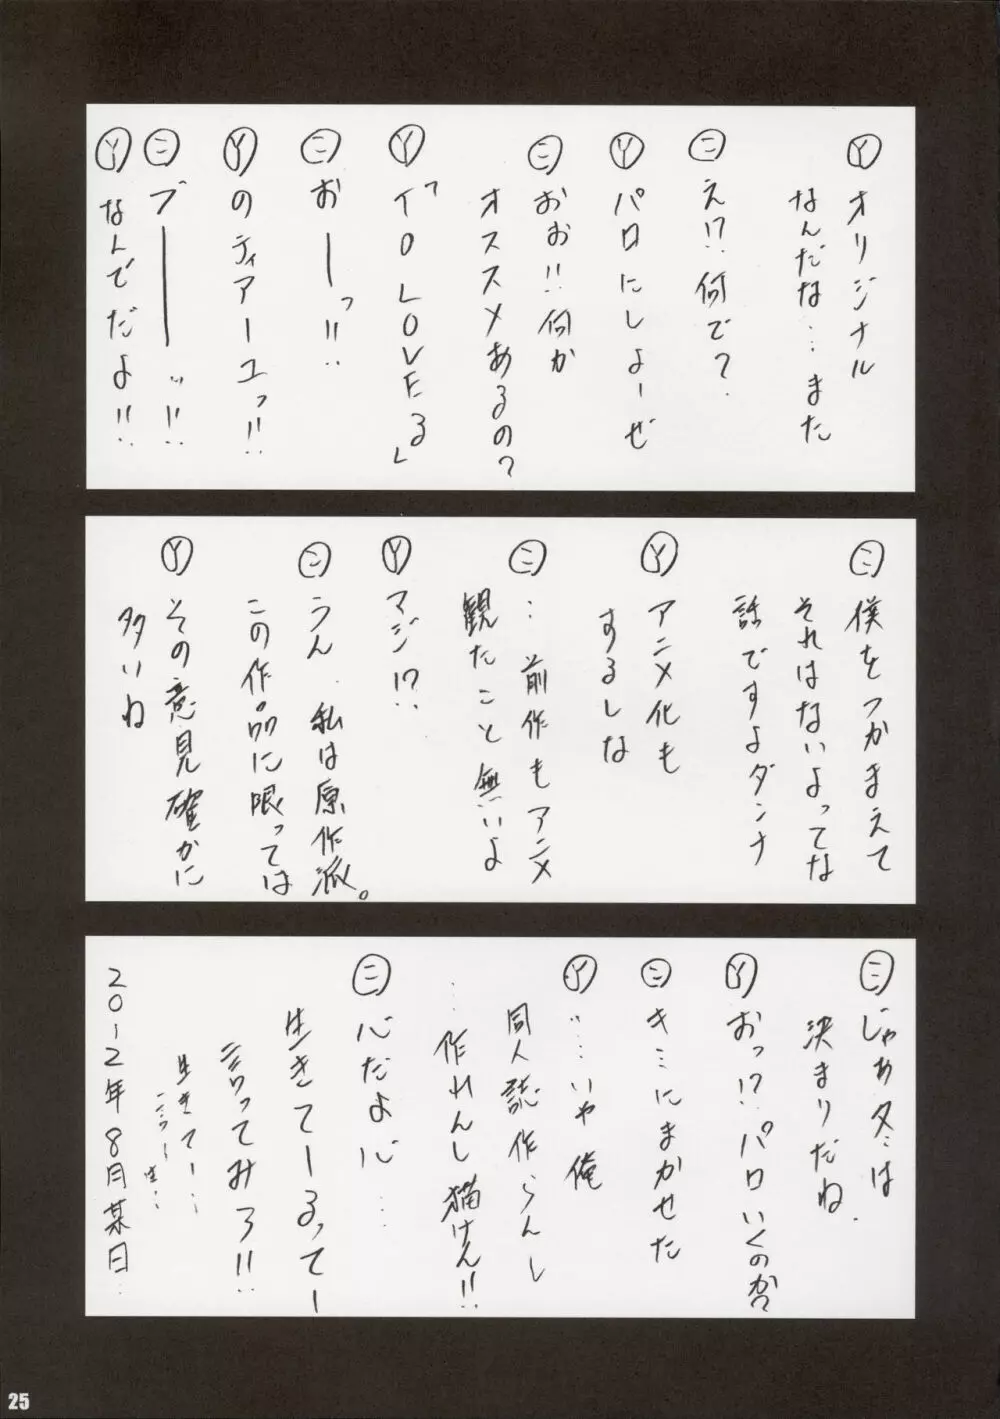 Ⓨ オリジナル
なんだな…また
㊁ え!?何で?
Ⓨ パロにしよーぜ
㊁ おお!!何か
オススメあるの?
Ⓨ 「TO LOVEる」
㊁ おーーっ!!
Ⓨ のティアーユっ!!
㊁ ブーーーッ!!
Ⓨ なんでだよ!!
㊁ 僕をつかまえて
それはないよってな
話ですよダンナ
Ⓨ アニメ化も
するしな
㊁ …前作もアニメ
観たこと無いよ
Ⓨ マジ!?
㊁ うん、私は原作派。
この作品に限っては
Ⓨ その意見確かに
多いね
㊁ じゃあ冬は
決まりだね.
Ⓨ おっ!?パロいくのか?
㊁ キミにまかせた
Ⓨ …いや俺
同人誌作らんし
…作れんし描けん!!
㊁ 心だよ心…
生きてーるってー
言ってみろ!!
生きてー…
2012年8月某日
25